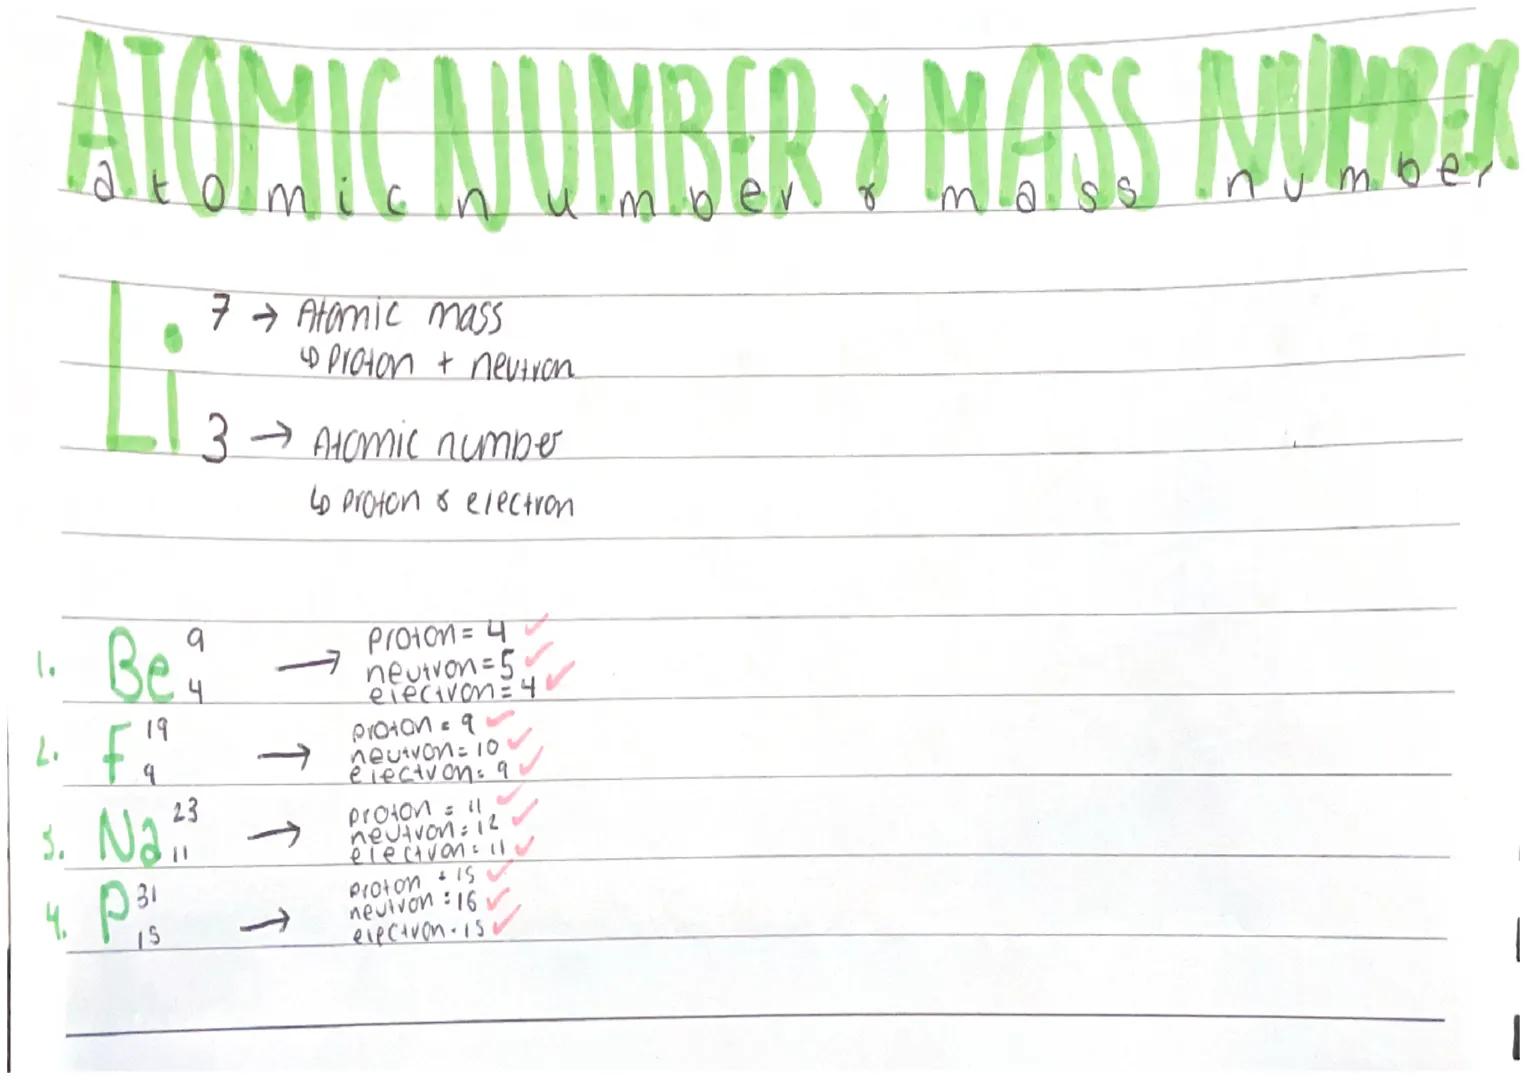 ATOMIC NUMBER & MASS NUMBER
atomic number & mass number
Li
7 → Atomic mass
↳ proton + neutron
3 → Atomic number
↳ proton & electron
1. Be 9 4 → proton = 4 ✓
neutron = 5 ✓
electron = 4 ✓
2. F 19 9 → proton = 9 ✓
neutron = 10 ✓
electron = 9 ✓
3. Na 23 11 → proton = 11 ✓
neutron = 12 ✓
electron = 11 ✓
4. P 31 15 → proton = 15 ✓
neutron = 16 ✓
electron = 15 ✓